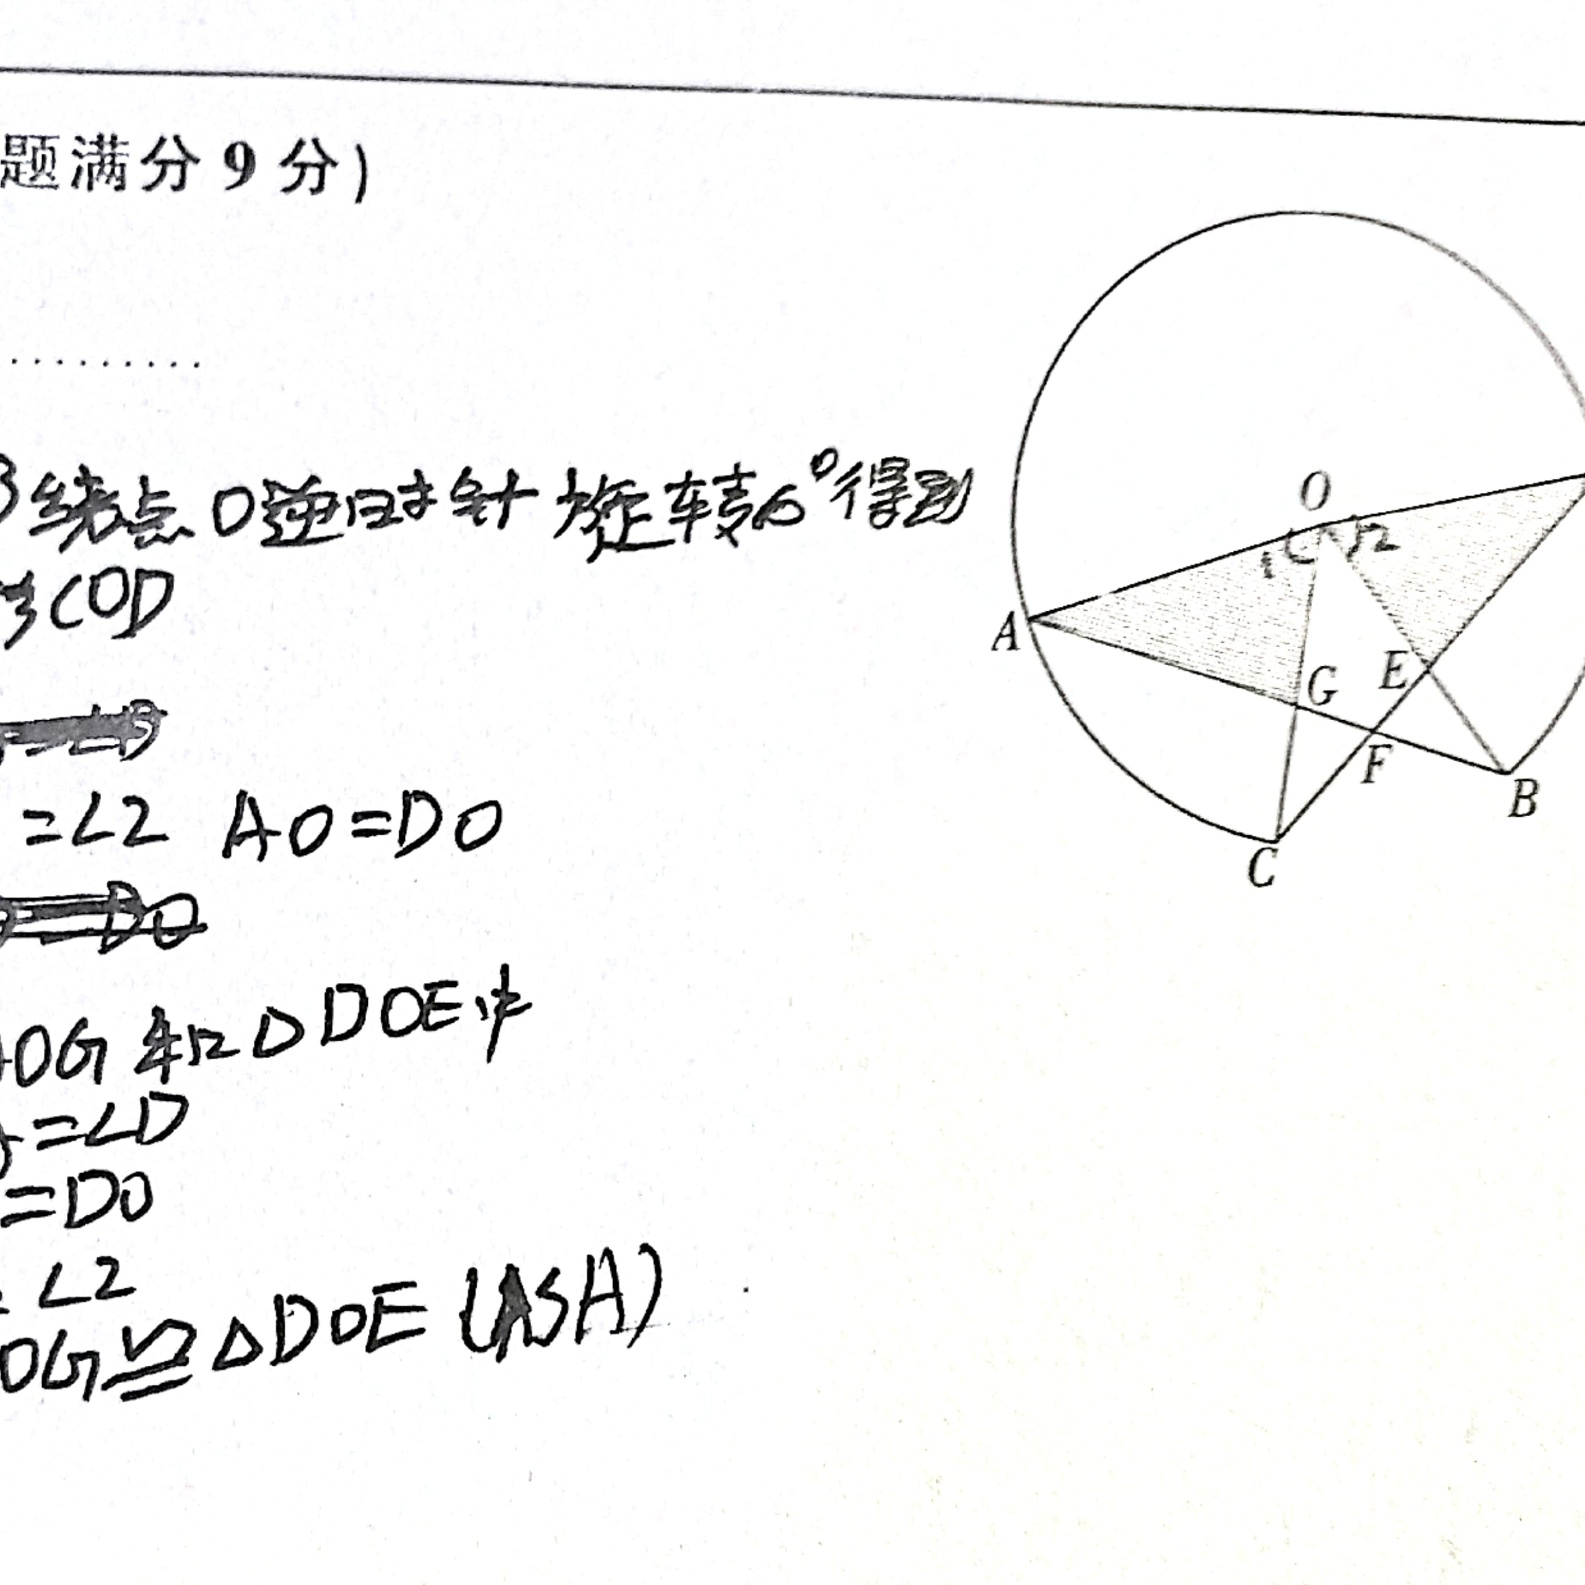 题满分 9 分)
绕点O逆时针旋转 °得到
COD
=∠2 AO=DO
OG和△DOE中
=∠D
=DO
∠2
OG≌△DOE(ASA)
O
1
2
A
G
E
F
B
C